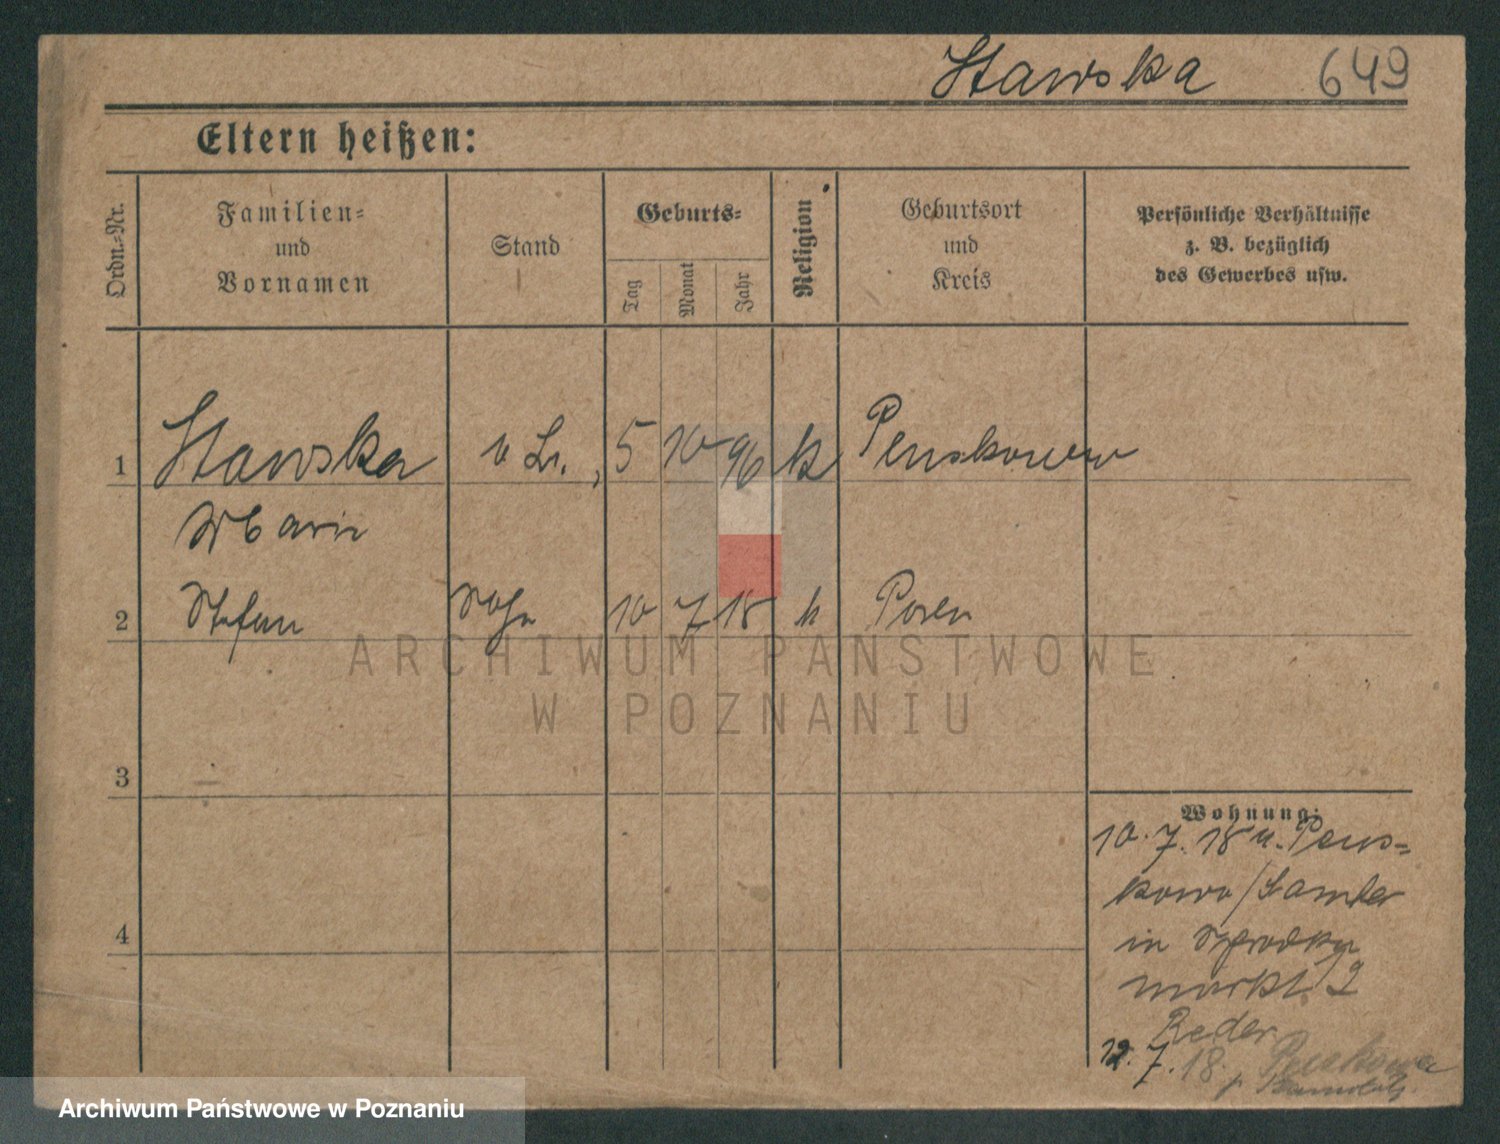 Stawska 649
Eltern heißen:
Ordn.-Nr.
Familien-
und
Vornamen
Stand
Geburts-
Tag
Monat
Jahr
Religion.
Geburtsort
und
Kreis
Persönliche Verhältnisse
z. B. bezüglich
des Gewerbes usw.
1 Stawska 5 10 96 k
Marie
2 Stefan Sohn 10 7 18 k Posen
3
4
Wohnung:
10. 7. 18
in
markt 2
12. 7. 18.
ARCHIWUM PAŃSTWOWE
W POZNANIU
Archiwum Państwowe w Poznaniu